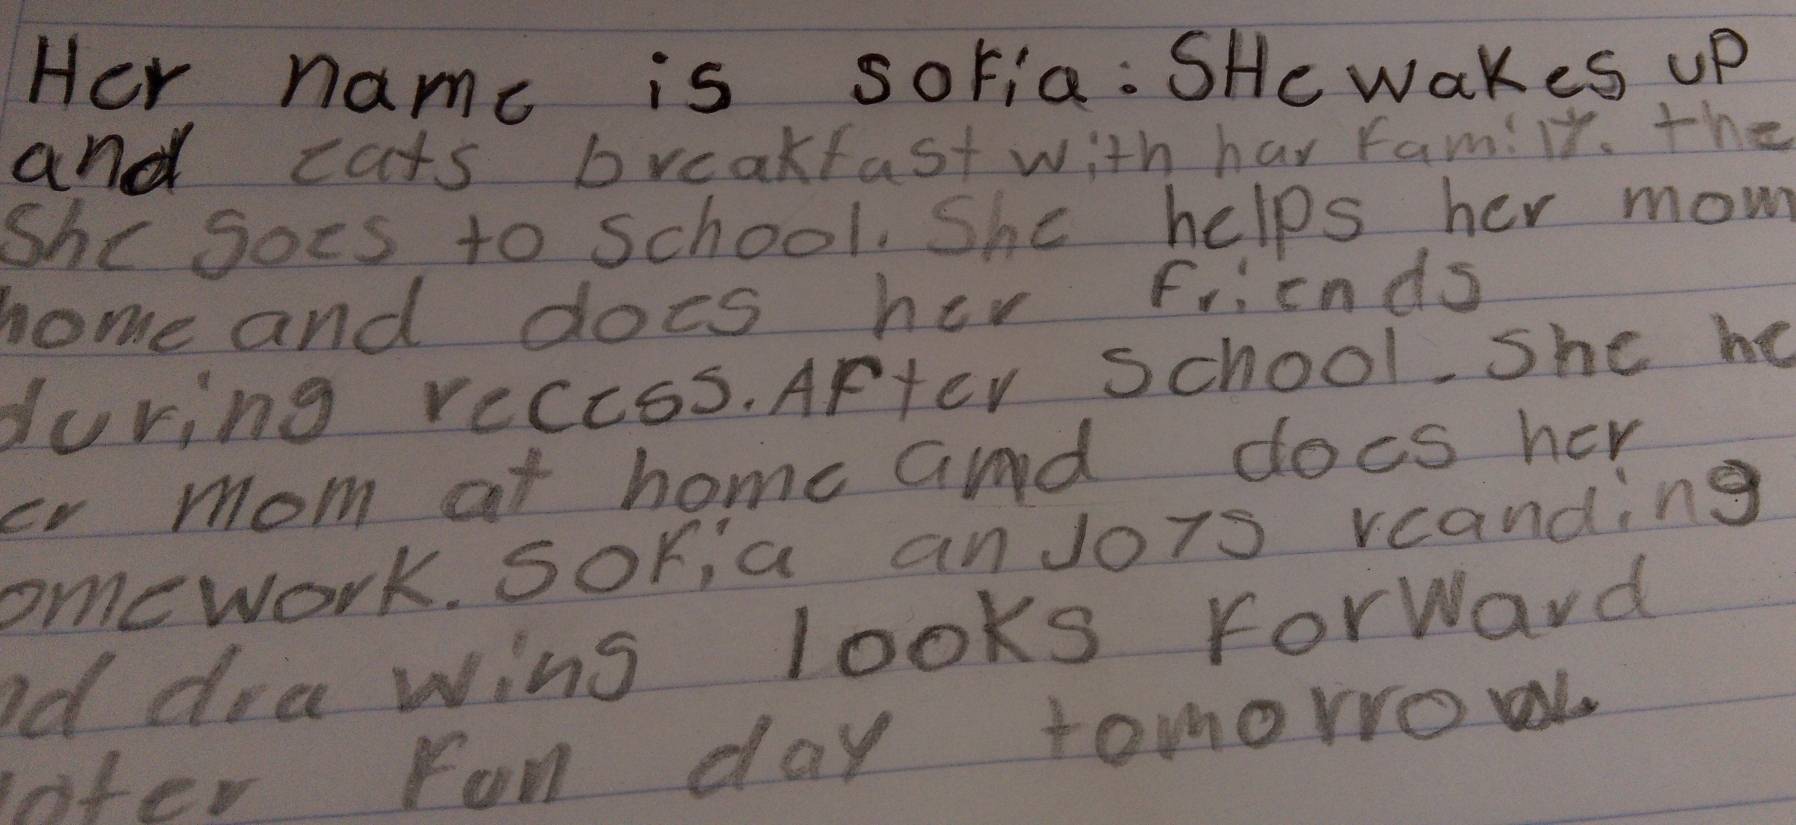 Her name is sofia: SHe wakes up
and eats breakfast with har Family. the
She goes to school. She helps her mom
home and does her friends
during recess. After school. She he
er mom at home and does her
omework. Sofia anjoys reanding
nd dra wing looks Forward
later Fun day tomorrow.